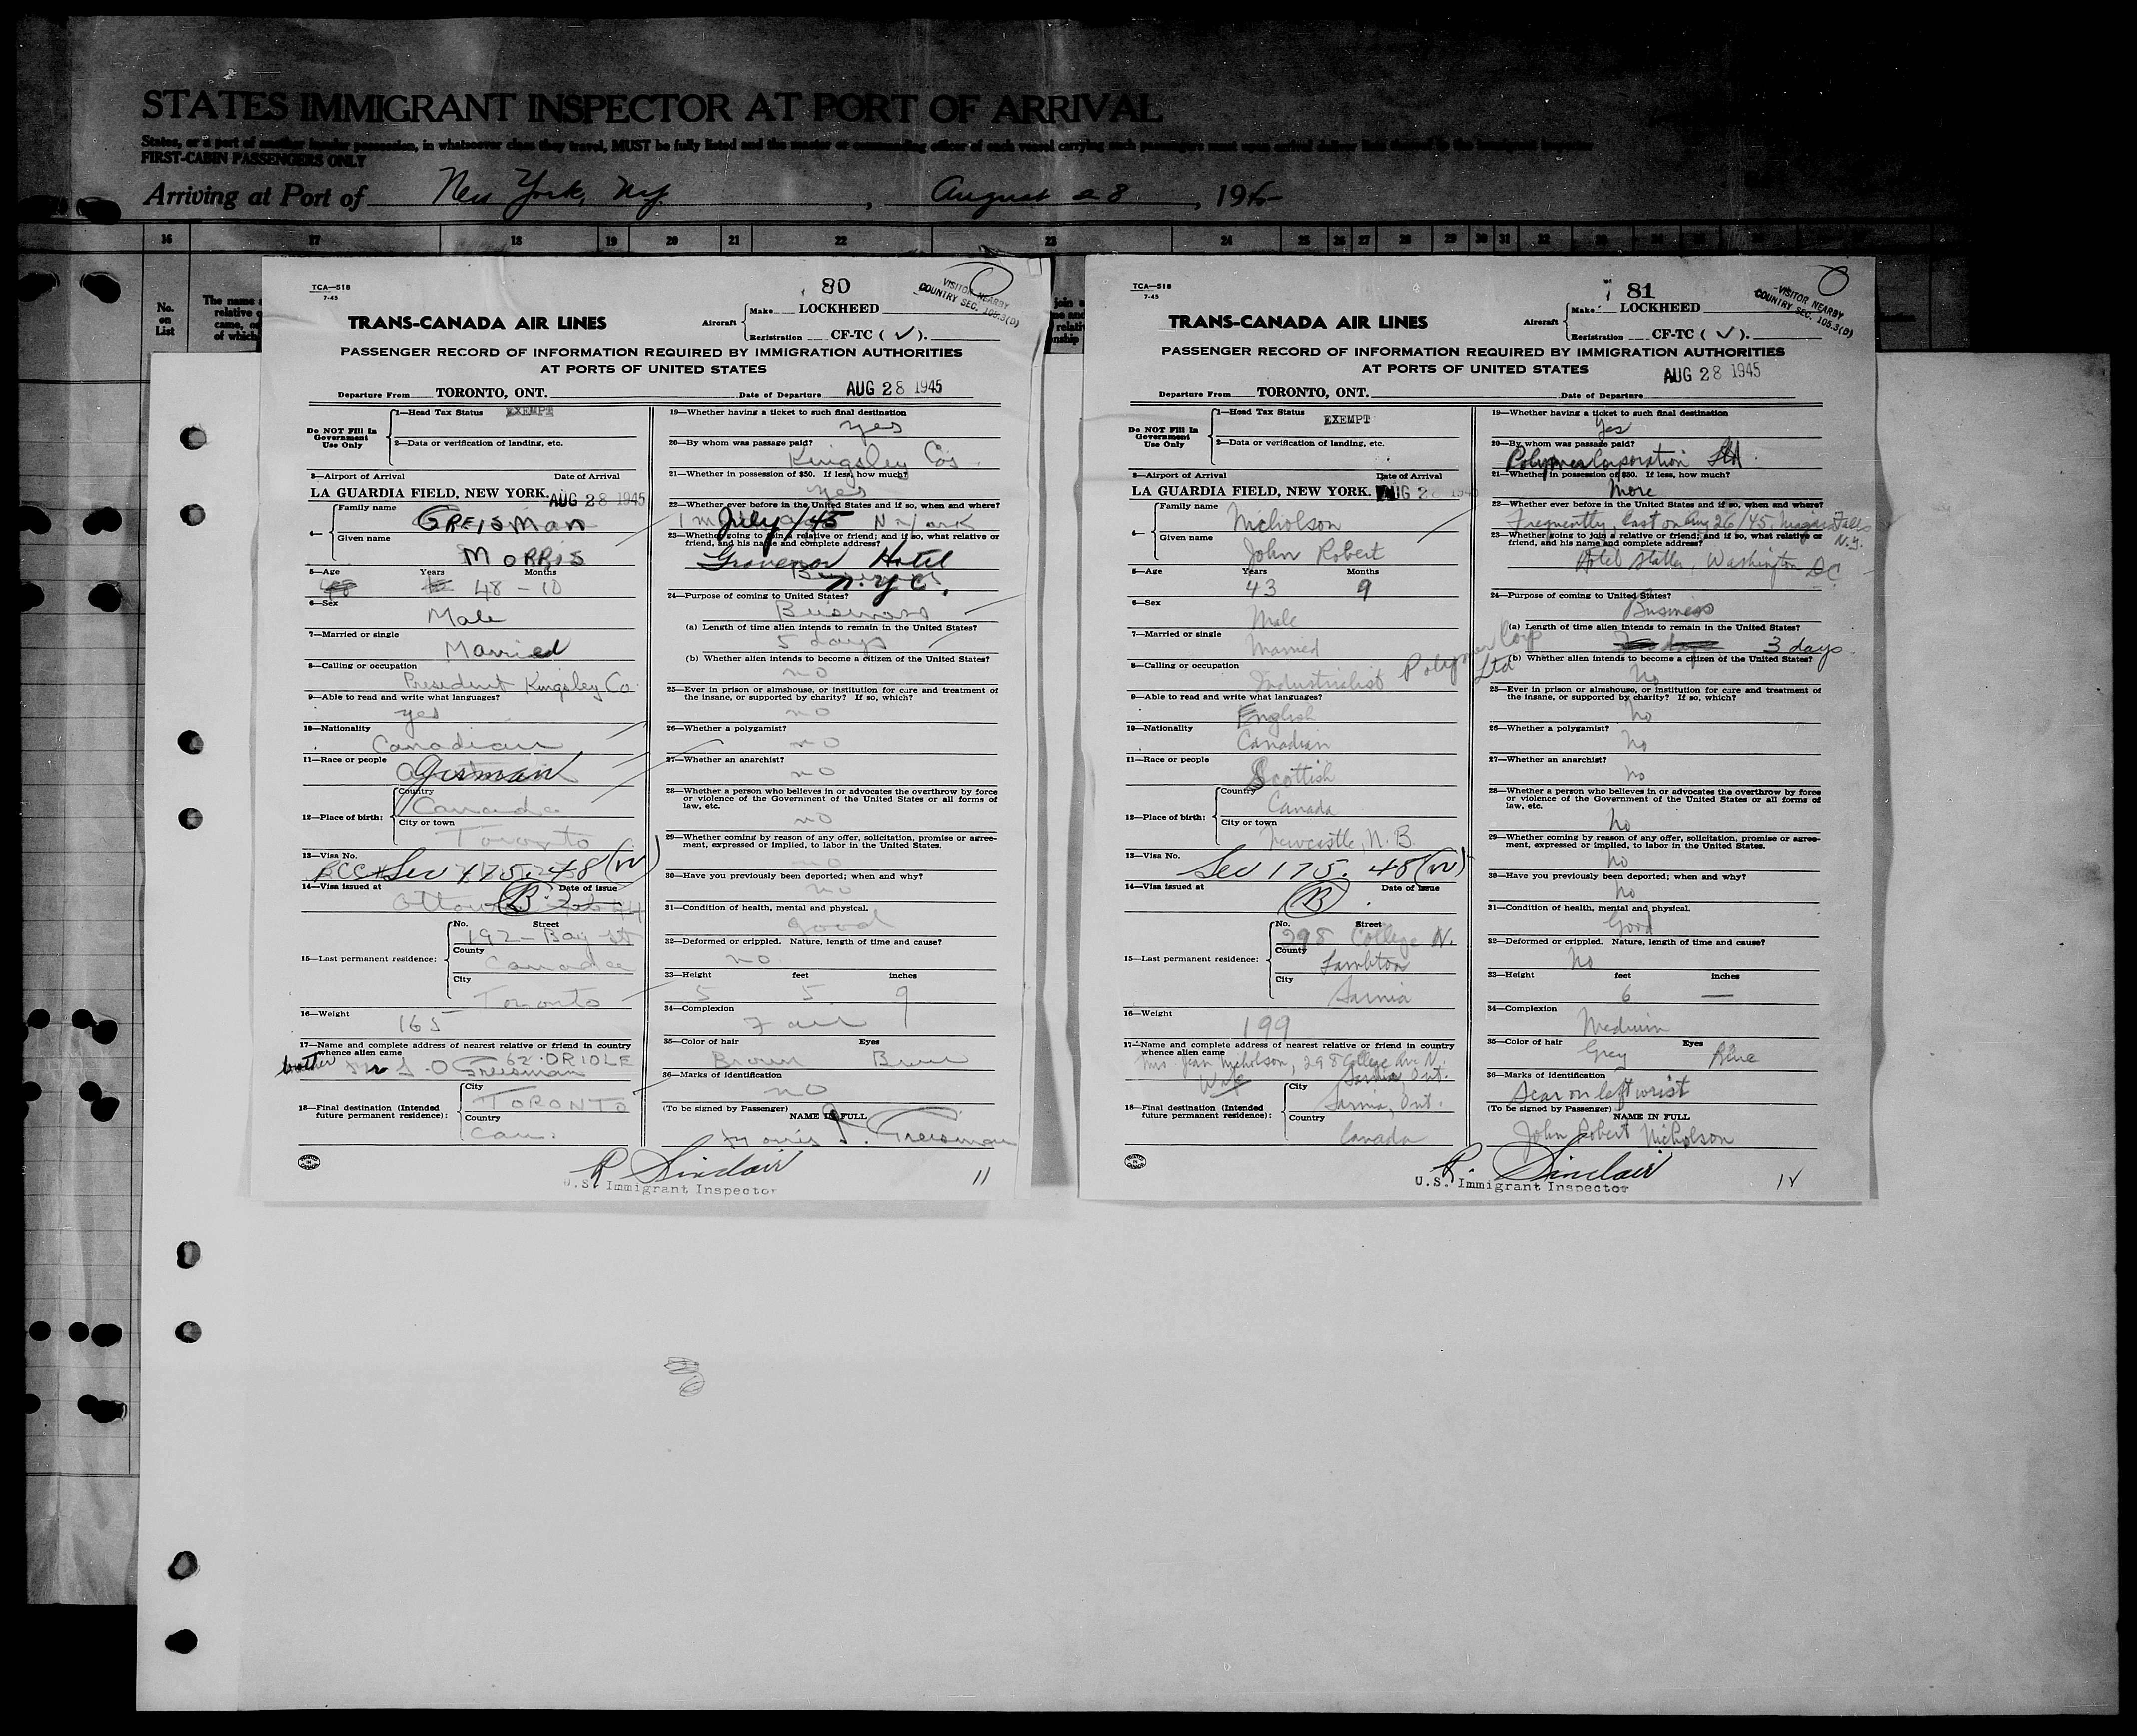 STATES IMMIGRANT INSPECTOR AT PORT OF ARRIVAL
FIRST-CABIN PASSENGERS ONLY
Arriving at Port of New York, NY, August 28, 1945
16 17 18 19 20 21 22 23 24 25 26 27 28 29 30 31 32
No. on List
80
TCA—518
7-45
VISITOR NEARBY
COUNTRY SEC. 105.3(D)
Make LOCKHEED
TRANS-CANADA AIR LINES
Aircraft
Registration CF-TC ( ✓ ).
PASSENGER RECORD OF INFORMATION REQUIRED BY IMMIGRATION AUTHORITIES
AT PORTS OF UNITED STATES
Departure From TORONTO, ONT. Date of Departure AUG 28 1945
Do NOT Fill In Government Use Only
1—Head Tax Status EXEMPT
2—Data or verification of landing, etc.
3—Airport of Arrival Date of Arrival
LA GUARDIA FIELD, NEW YORK. AUG 28 1945
4— Family name GREISMAN
Given name MORRIS
5—Age Years Months
48 - 10
6—Sex
Male
7—Married or single
Married
8—Calling or occupation
President Kingsley Co
9—Able to read and write what languages?
yes
10—Nationality
Canadian
11—Race or people
German
12—Place of birth: Country Canada
City or town
Toronto
13—Visa No.
Sec 175. 48 (W)
14—Visa issued at Date of issue
Ottawa (B)
15—Last permanent residence: No. Street
192 - Bay St
County
Canada
City
Toronto
16—Weight
165
17—Name and complete address of nearest relative or friend in country
whence alien came
brother Greisman 62 ORIOLE
18—Final destination (Intended future permanent residence): City
TORONTO
Country
Can.
19—Whether having a ticket to such final destination
yes
20—By whom was passage paid?
Kingsley Co's
21—Whether in possession of $50. If less, how much?
yes
22—Whether ever before in the United States and if so, when and where?
July/45 N York
23—Whether going to join a relative or friend; and if so, what relative or
friend, and his name and complete address?
Grovenor Hotel
N.Y.C.
24—Purpose of coming to United States?
Business
(a) Length of time alien intends to remain in the United States?
5 days
(b) Whether alien intends to become a citizen of the United States?
no
25—Ever in prison or almshouse, or institution for care and treatment of
the insane, or supported by charity? If so, which?
no
26—Whether a polygamist?
no
27—Whether an anarchist?
no
28—Whether a person who believes in or advocates the overthrow by force
or violence of the Government of the United States or all forms of
law, etc.
no
29—Whether coming by reason of any offer, solicitation, promise or agree-
ment, expressed or implied, to labor in the United States.
no
30—Have you previously been deported; when and why?
no
31—Condition of health, mental and physical.
good
32—Deformed or crippled. Nature, length of time and cause?
no
33—Height feet inches
5 5 9
34—Complexion
Fair
35—Color of hair Eyes
Brown
36—Marks of identification
no
(To be signed by Passenger) NAME IN FULL
Morris Greisman
R. Sinclair
U.S. Immigrant Inspector
11
81
TCA—518
7-45
VISITOR NEARBY
COUNTRY SEC. 105.3(D)
Make LOCKHEED
TRANS-CANADA AIR LINES
Aircraft
Registration CF-TC ( ✓ ).
PASSENGER RECORD OF INFORMATION REQUIRED BY IMMIGRATION AUTHORITIES
AT PORTS OF UNITED STATES
AUG 28 1945
Departure From TORONTO, ONT. Date of Departure
Do NOT Fill In Government Use Only
1—Head Tax Status
EXEMPT
2—Data or verification of landing, etc.
3—Airport of Arrival Date of Arrival
LA GUARDIA FIELD, NEW YORK. AUG 28 1945
4— Family name Nicholson
Given name John Robert
5—Age Years Months
43 9
6—Sex
Male
7—Married or single
Married
8—Calling or occupation
Industrialist Polymer Corp Ltd
9—Able to read and write what languages?
English
10—Nationality
Canadian
11—Race or people
Scottish
12—Place of birth: Country Canada
City or town
Newcastle, N.B.
13—Visa No.
Sec 175. 48 (W)
14—Visa issued at Date of issue
(B)
15—Last permanent residence: No. Street
298 College N.
County
Lambton
City
Sarnia
16—Weight
199
17—Name and complete address of nearest relative or friend in country
whence alien came
Mrs. Jean Nicholson, 298 College Av. N.
Wife Sarnia, Ont.
18—Final destination (Intended future permanent residence): City
Sarnia, Ont.
Country
Canada
19—Whether having a ticket to such final destination
Yes
20—By whom was passage paid?
Polymer Corporation Ltd
21—Whether in possession of $50. If less, how much?
More
22—Whether ever before in the United States and if so, when and where?
Frequently, last on Aug 26/45, Niagara Falls N.Y.
23—Whether going to join a relative or friend; and if so, what relative or
friend, and his name and complete address?
Hotel Statler, Washington DC
24—Purpose of coming to United States?
Business
(a) Length of time alien intends to remain in the United States?
3 days
(b) Whether alien intends to become a citizen of the United States?
No
25—Ever in prison or almshouse, or institution for care and treatment of
the insane, or supported by charity? If so, which?
No
26—Whether a polygamist?
No
27—Whether an anarchist?
No
28—Whether a person who believes in or advocates the overthrow by force
or violence of the Government of the United States or all forms of
law, etc.
No
29—Whether coming by reason of any offer, solicitation, promise or agree-
ment, expressed or implied, to labor in the United States.
No
30—Have you previously been deported; when and why?
No
31—Condition of health, mental and physical.
Good
32—Deformed or crippled. Nature, length of time and cause?
No
33—Height feet inches
6 —
34—Complexion
Medium
35—Color of hair Eyes
Grey Blue
36—Marks of identification
Scar on left wrist
(To be signed by Passenger) NAME IN FULL
John Robert Nicholson
R. Sinclair
U.S. Immigrant Inspector
12